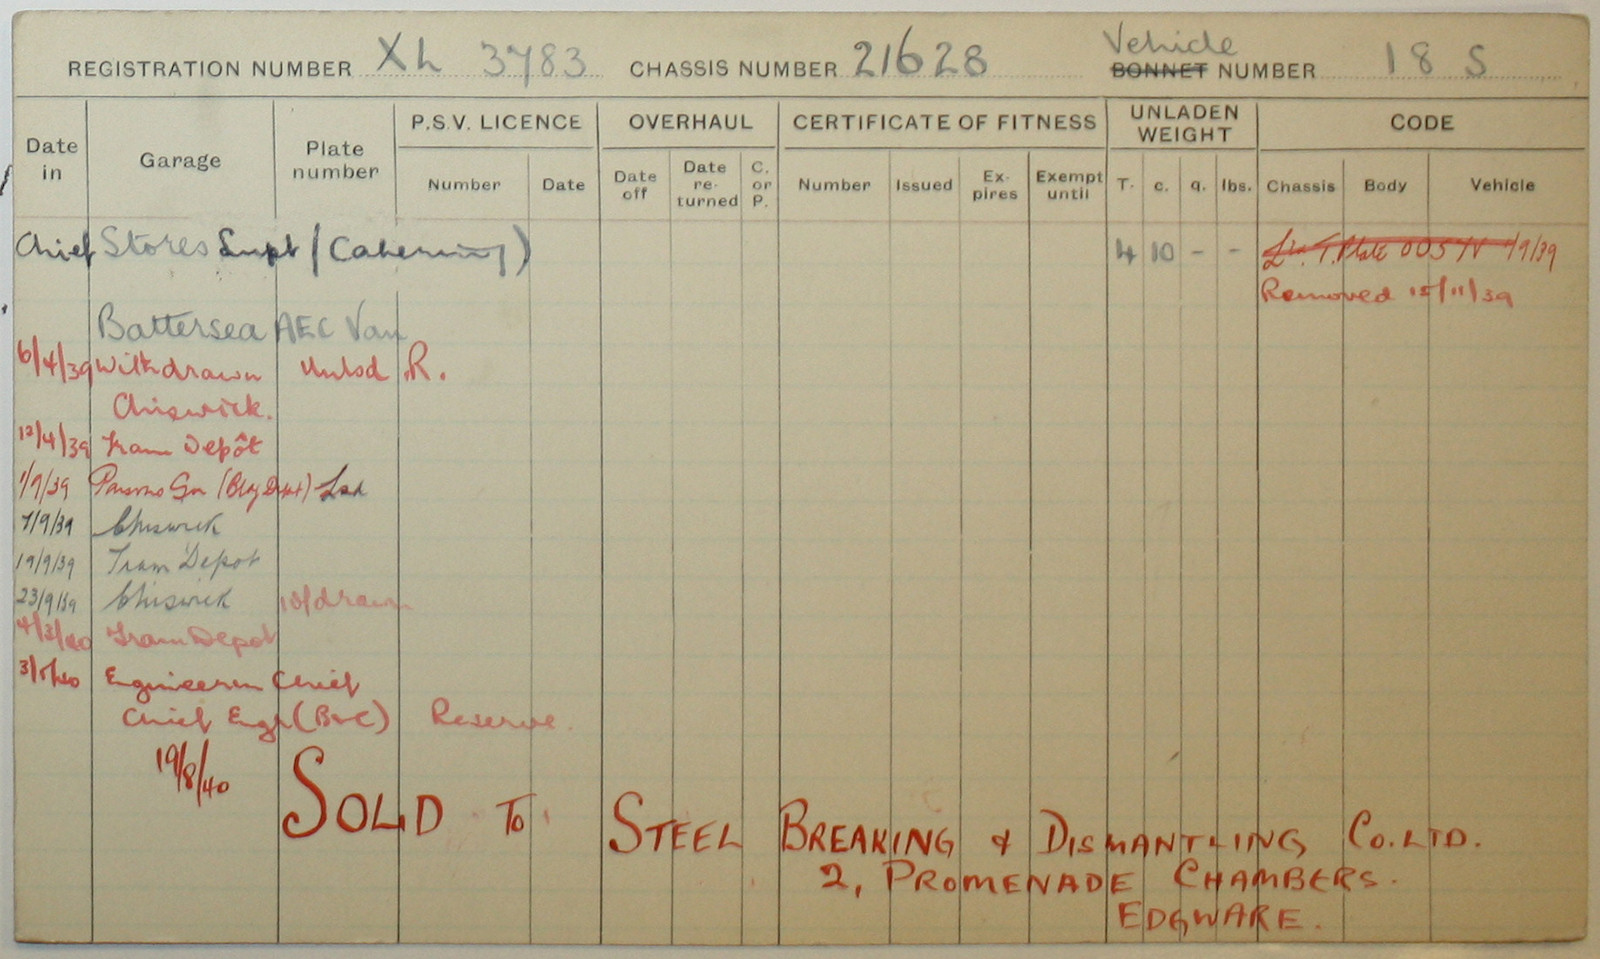 REGISTRATION NUMBER XL 3783 CHASSIS NUMBER 21628 Vehicle BONNET NUMBER 18 S
Date in Garage Plate number P.S.V. LICENCE OVERHAUL CERTIFICATE OF FITNESS UNLADEN WEIGHT CODE
Number Date Date off Date re-turned C. or P. Number Issued Ex-pires Exempt until T. c. q. lbs. Chassis Body Vehicle
Chief Stores Supt (Catering) 4 10 - - T. Plate 005 1/9/39
Removed 15/11/39
Battersea AEC Van
6/4/39 Withdrawn Unlsd R.
Chiswick.
12/4/39 Tram Depôt
1/9/39 Parsons Gn Lsd
7/9/39 Chiswick
19/9/39 Tram Depot
23/9/39 Chiswick W/drawn
4/3/40 Tram Depot
3/5/40 Engineer in Chief
Chief Engr (B&C) Reserve.
19/8/40 SOLD TO STEEL BREAKING & DISMANTLING CO. LTD.
2, PROMENADE CHAMBERS.
EDGWARE.